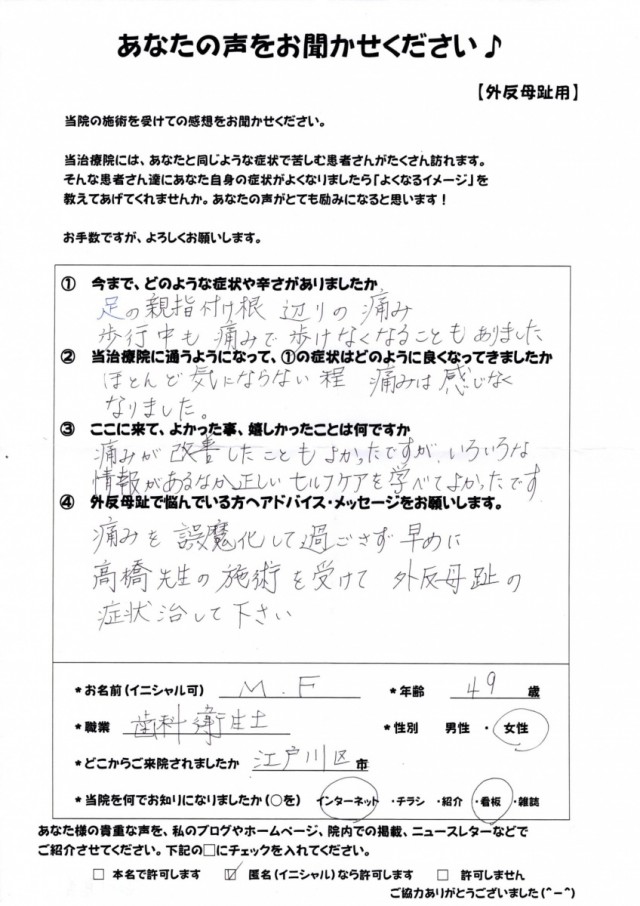 あなたの声をお聞かせください♪
【外反母趾用】
当院の施術を受けての感想をお聞かせください。
当治療院には、あなたと同じような症状で苦しむ患者さんがたくさん訪れます。
そんな患者さん達にあなた自身の症状がよくなりましたら「よくなるイメージ」を
教えてあげてくれませんか。あなたの声がとても励みになると思います！
お手数ですが、よろしくお願いします。
① 今まで、どのような症状や辛さがありましたか
足の親指付け根 辺りの 痛み
歩行中も 痛みで 歩けなくなることも ありました
② 当治療院に通うようになって、①の症状はどのように良くなってきましたか
ほとんど 気にならない 程 痛みは 感じなく
なりました。
③ ここに来て、よかった事、嬉しかったことは何ですか
痛みが 改善したことも よかったですが、いろいろな
情報があるなか 正しい セルフケアを 学べてよかったです
④ 外反母趾で悩んでいる方へアドバイス・メッセージをお願いします。
痛みを 誤魔化して 過ごさず 早めに
高橋先生の 施術を受けて 外反母趾の
症状治して下さい
*お名前(イニシャル可) M.F *年齢 49 歳
*職業 歯科衛生士 *性別 男性 ・ 女性
*どこからご来院されましたか 江戸川区 市
*当院を何でお知りになりましたか(○を) インターネット ・チラシ ・紹介 ・看板 ・雑誌
あなた様の貴重な声を、私のブログやホームページ、院内での掲載、ニュースレターなどで
ご紹介させてください。下記の□にチェックを入れてください。
□ 本名で許可します ☑ 匿名(イニシャル)なら許可します □ 許可しません
ご協力ありがとうございました(^-^)